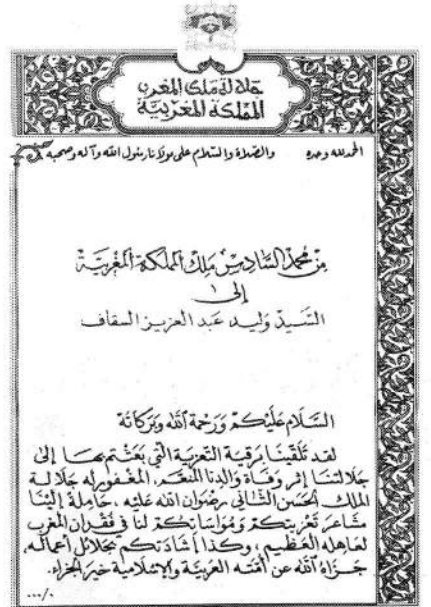 جلالة ملك المغرب
المملكة المغربية
الحمد لله وحده والصلاة والسلام على مولانا رسول الله وآله وصحبه
من محمد السادس ملك المملكة المغربية
إلى
السيد وليد عبد العزيز السقاف
السلام عليكم ورحمة الله وبركاته
لقد تلقينا برقية التعزية التي بعثتم بها إلى
جلالتنا إثر وفاة والدنا المنعم، المغفور له جلالة
الملك الحسن الثاني رضوان الله عليه، حاملة إلينا
مشاعر تعزيتكم ومؤاساتكم لنا في فقدان المغرب
لعاهله العظيم، وكذا إشادتكم بجلائل أعماله،
جزاه الله عن أمته العربية والإسلامية خير الجزاء.
.../.